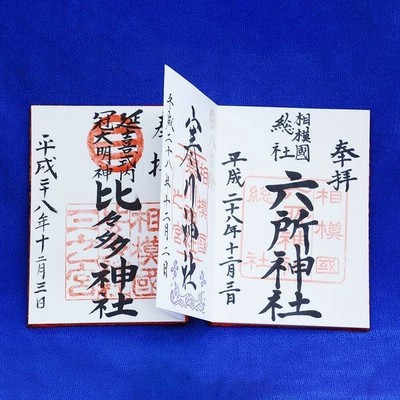 奉拝
相模國
総社
六所神社
平成二十八年十二月三日
相模國
総社
寒川神社
相模國
一之宮
延喜式内
冠大明神
比々多神社
平成廿八年十二月三日
相模國
三之宮